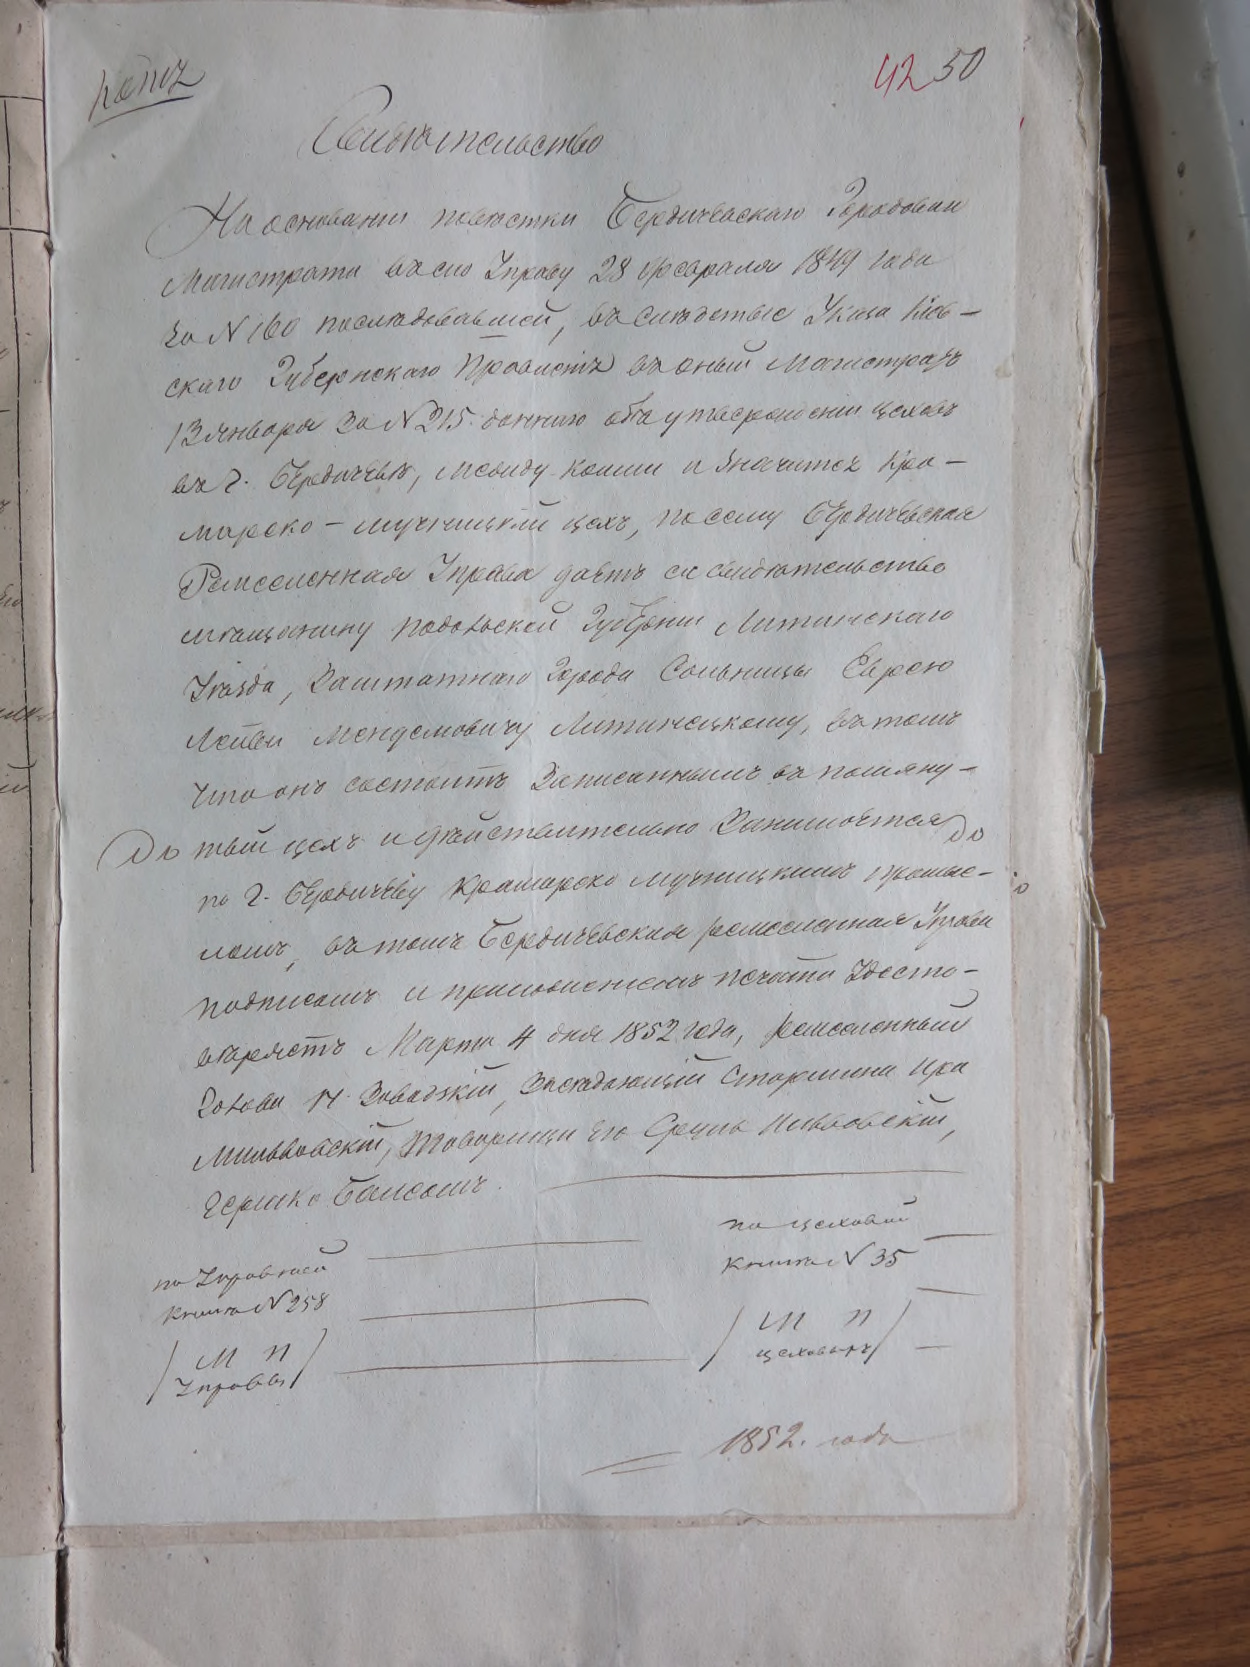 Копія
42 50
Свидѣтельство
На основаніи повѣстки Бердичевскаго Городоваго
Магистрата въ сію Управу 28 февраля 1849 года
за N 160 послѣдовавшей, въ слѣдствіе Указа Кіев-
скаго Губернскаго Правленія въ оный Магистратъ
13 января за N 315 даннаго объ утвержденіи цеховъ
въ г. Бердичевѣ, между коими и значится Кра-
марско - мучницкій цехъ, по сему Бердичевская
Ремесленная Управа даетъ сіе свидѣтельство
мѣщанину Подольской Губерніи Литинскаго
Уѣзда, Заштатнаго Города Сальницы Еврею
Лейбѣ Мендемовичу Литинецкому, въ томъ
что онъ состоитъ Записаннымъ въ помяну-
тый цехъ и дѣйствительно Занимается
по г. Бердичеву Крамарско мучницкимъ промыс-
ломъ, въ томъ Бердичевская ремесленная Управа
подписомъ и приложеніемъ печати Удосто-
вѣряетъ Марта 4 дня 1852 года, ремесленный
Голова И. Завадзкій, Засѣдающій Старшина Ира
Мильвовскій, Товарищи Его Сруль Львовскій,
Гершко Балсамъ.
по Цеховой
Книгѣ N 35
по Управной
Книгѣ N 258
М П
Управы
М П
цеховыхъ
1852. года